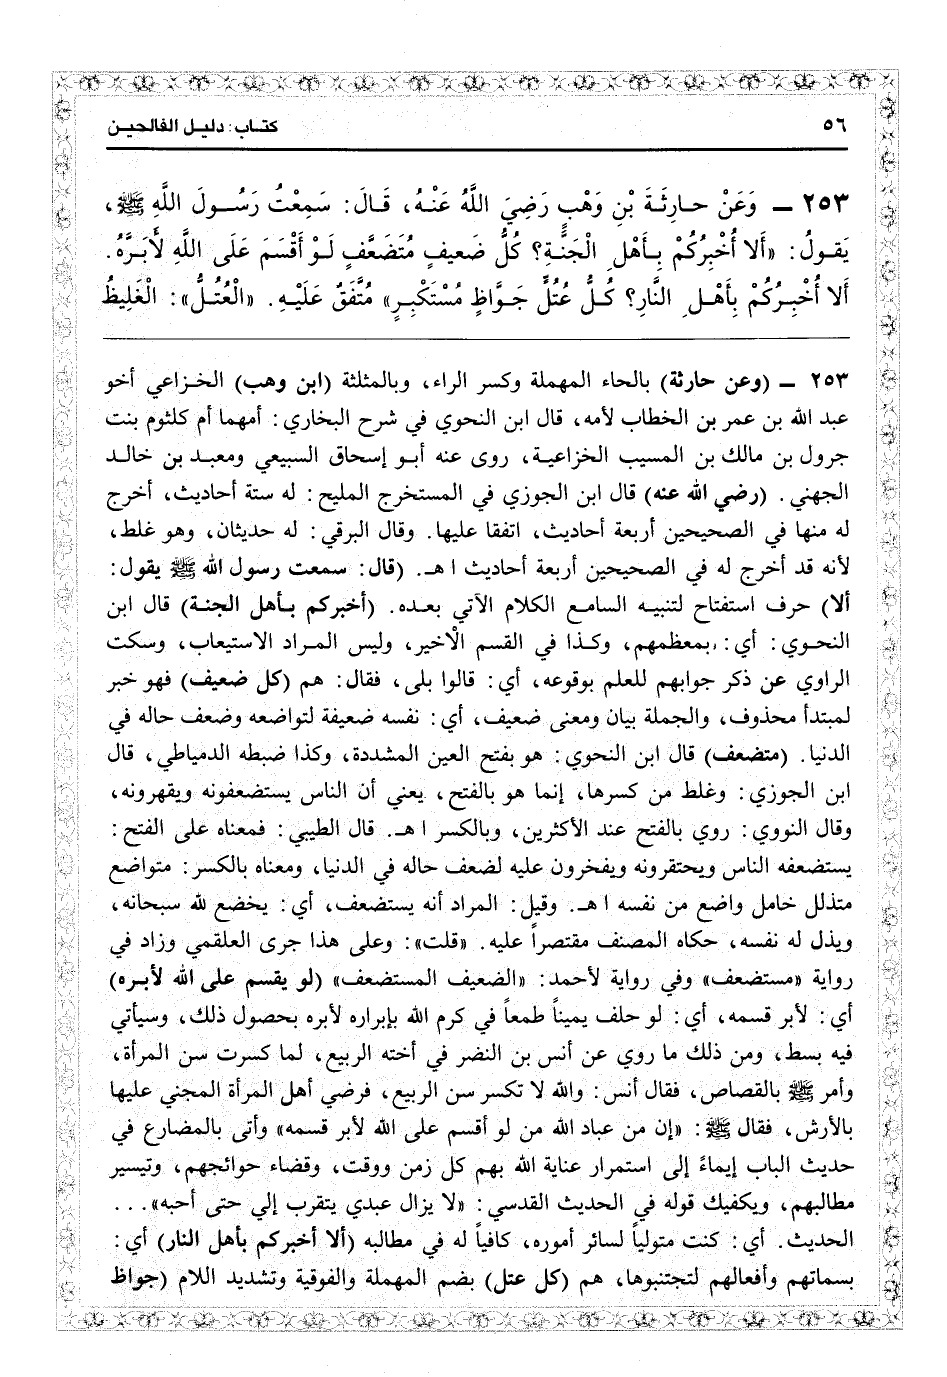 ٥٦
كتاب: دليل الفالحين
٢٥٣ ـ وَعَنْ حـارِثَـةَ بْنِ وَهْبٍ رَضِيَ اللَّهُ عَنْـهُ، قَـالَ: سَمِعْتُ رَسُـولَ اللَّهِ ﷺ،
يَقـولُ: «أَلا أُخْبِرُكُمْ بِـأَهْلِ الْجَنَّـةِ؟ كُلُّ ضَعيفٍ مُتَضَعَّفٍ لَـوْ أَقْسَمَ عَلَى اللَّهِ لأَبَرَّهُ.
أَلا أُخْبِـرُكُمْ بِأَهْـلِ النَّارِ؟ كُـلُّ عُتُلٍّ جَـوَّاظٍ مُسْتَكْبِـرٍ» مُتَّفَقٌ عَلَيْـهِ. «الْعُتُـلُّ»: الْغَلِيظُ
٢٥٣ ـ (وعن حارثة) بالحاء المهملة وكسر الراء، وبالمثلثة (ابن وهب) الخـزاعي أخو
عبد الله بن عمر بن الخطاب لأمه، قال ابن النحوي في شرح البخاري: أمهما أم كلثوم بنت
جرول بن مالك بن المسيب الخزاعيـة، روى عنه أبـو إسحاق السبيعي ومعبـد بن خالـد
الجهني. (رضي الله عنه) قال ابن الجوزي في المستخرج المليح: له ستة أحاديث، أخرج
له منها في الصحيحين أربعة أحاديث، اتفقا عليها. وقال البرقي: له حديثان، وهو غلط،
لأنه قد أخرج له في الصحيحين أربعة أحاديث ا هـ. (قال: سمعت رسول الله ﷺ يقول:
ألا) حرف استفتاح لتنبيه السامع الكلام الآتي بعده. (أخبركم بـأهل الجنـة) قال ابن
النحـوي: أي: بمعظمهم، وكـذا في القسم الأخير، وليس المـراد الاستيعاب، وسكت
الراوي عن ذكر جوابهم للعلم بوقوعه، أي: قالوا بلى، فقال: هم (كل ضعيف) فهو خبر
لمبتدأ محذوف، والجملة بيان ومعنى ضعيف، أي: نفسه ضعيفة لتواضعه وضعف حاله في
الدنيا. (متضعف) قال ابن النحوي: هو بفتح العين المشددة، وكذا ضبطه الدمياطي، قال
ابن الجوزي: وغلط من كسرها، إنما هو بالفتح، يعني أن الناس يستضعفونه ويقهرونه،
وقال النووي: روي بالفتح عند الأكثرين، وبالكسر ا هـ. قال الطيبي: فمعناه على الفتح:
يستضعفه الناس ويحتقرونه ويفخرون عليه لضعف حاله في الدنيا، ومعناه بالكسر: متواضع
متذلل خامل واضع من نفسه ا هـ. وقيل: المراد أنه يستضعف، أي: يخضع لله سبحانه،
ويذل له نفسه، حكاه المصنف مقتصراً عليه. «قلت»: وعلى هذا جرى العلقمي وزاد في
رواية «مستضعف» وفي رواية لأحمد: «الضعيف المستضعف» (لو يقسم على الله لأبـره)
أي: لأبر قسمه، أي: لو حلف يميناً طمعاً في كرم الله بإبراره لأبره بحصول ذلك، وسيأتي
فيه بسط، ومن ذلك ما روي عن أنس بن النضر في أخته الربيع، لما كسرت سن المرأة،
وأمر ﷺ بالقصاص، فقال أنس: والله لا تكسر سن الربيع، فرضي أهل المرأة المجني عليها
بالأرش، فقال ﷺ: «إن من عباد الله من لو أقسم على الله لأبر قسمه» وأتى بالمضارع في
حديث الباب إيماءً إلى استمرار عناية الله بهم كل زمن ووقت، وقضاء حوائجهم، وتيسير
مطالبهم، ويكفيك قوله في الحديث القدسي: «لا يزال عبدي يتقرب إلي حتى أحبه»...
الحديث. أي: كنت متولياً لسائر أموره، كافياً له في مطالبه (ألا أخبركم بأهل النار) أي:
بسماتهم وأفعالهم لتجتنبوها، هم (كل عتل) بضم المهملة والفوقية وتشديد اللام (جواظ